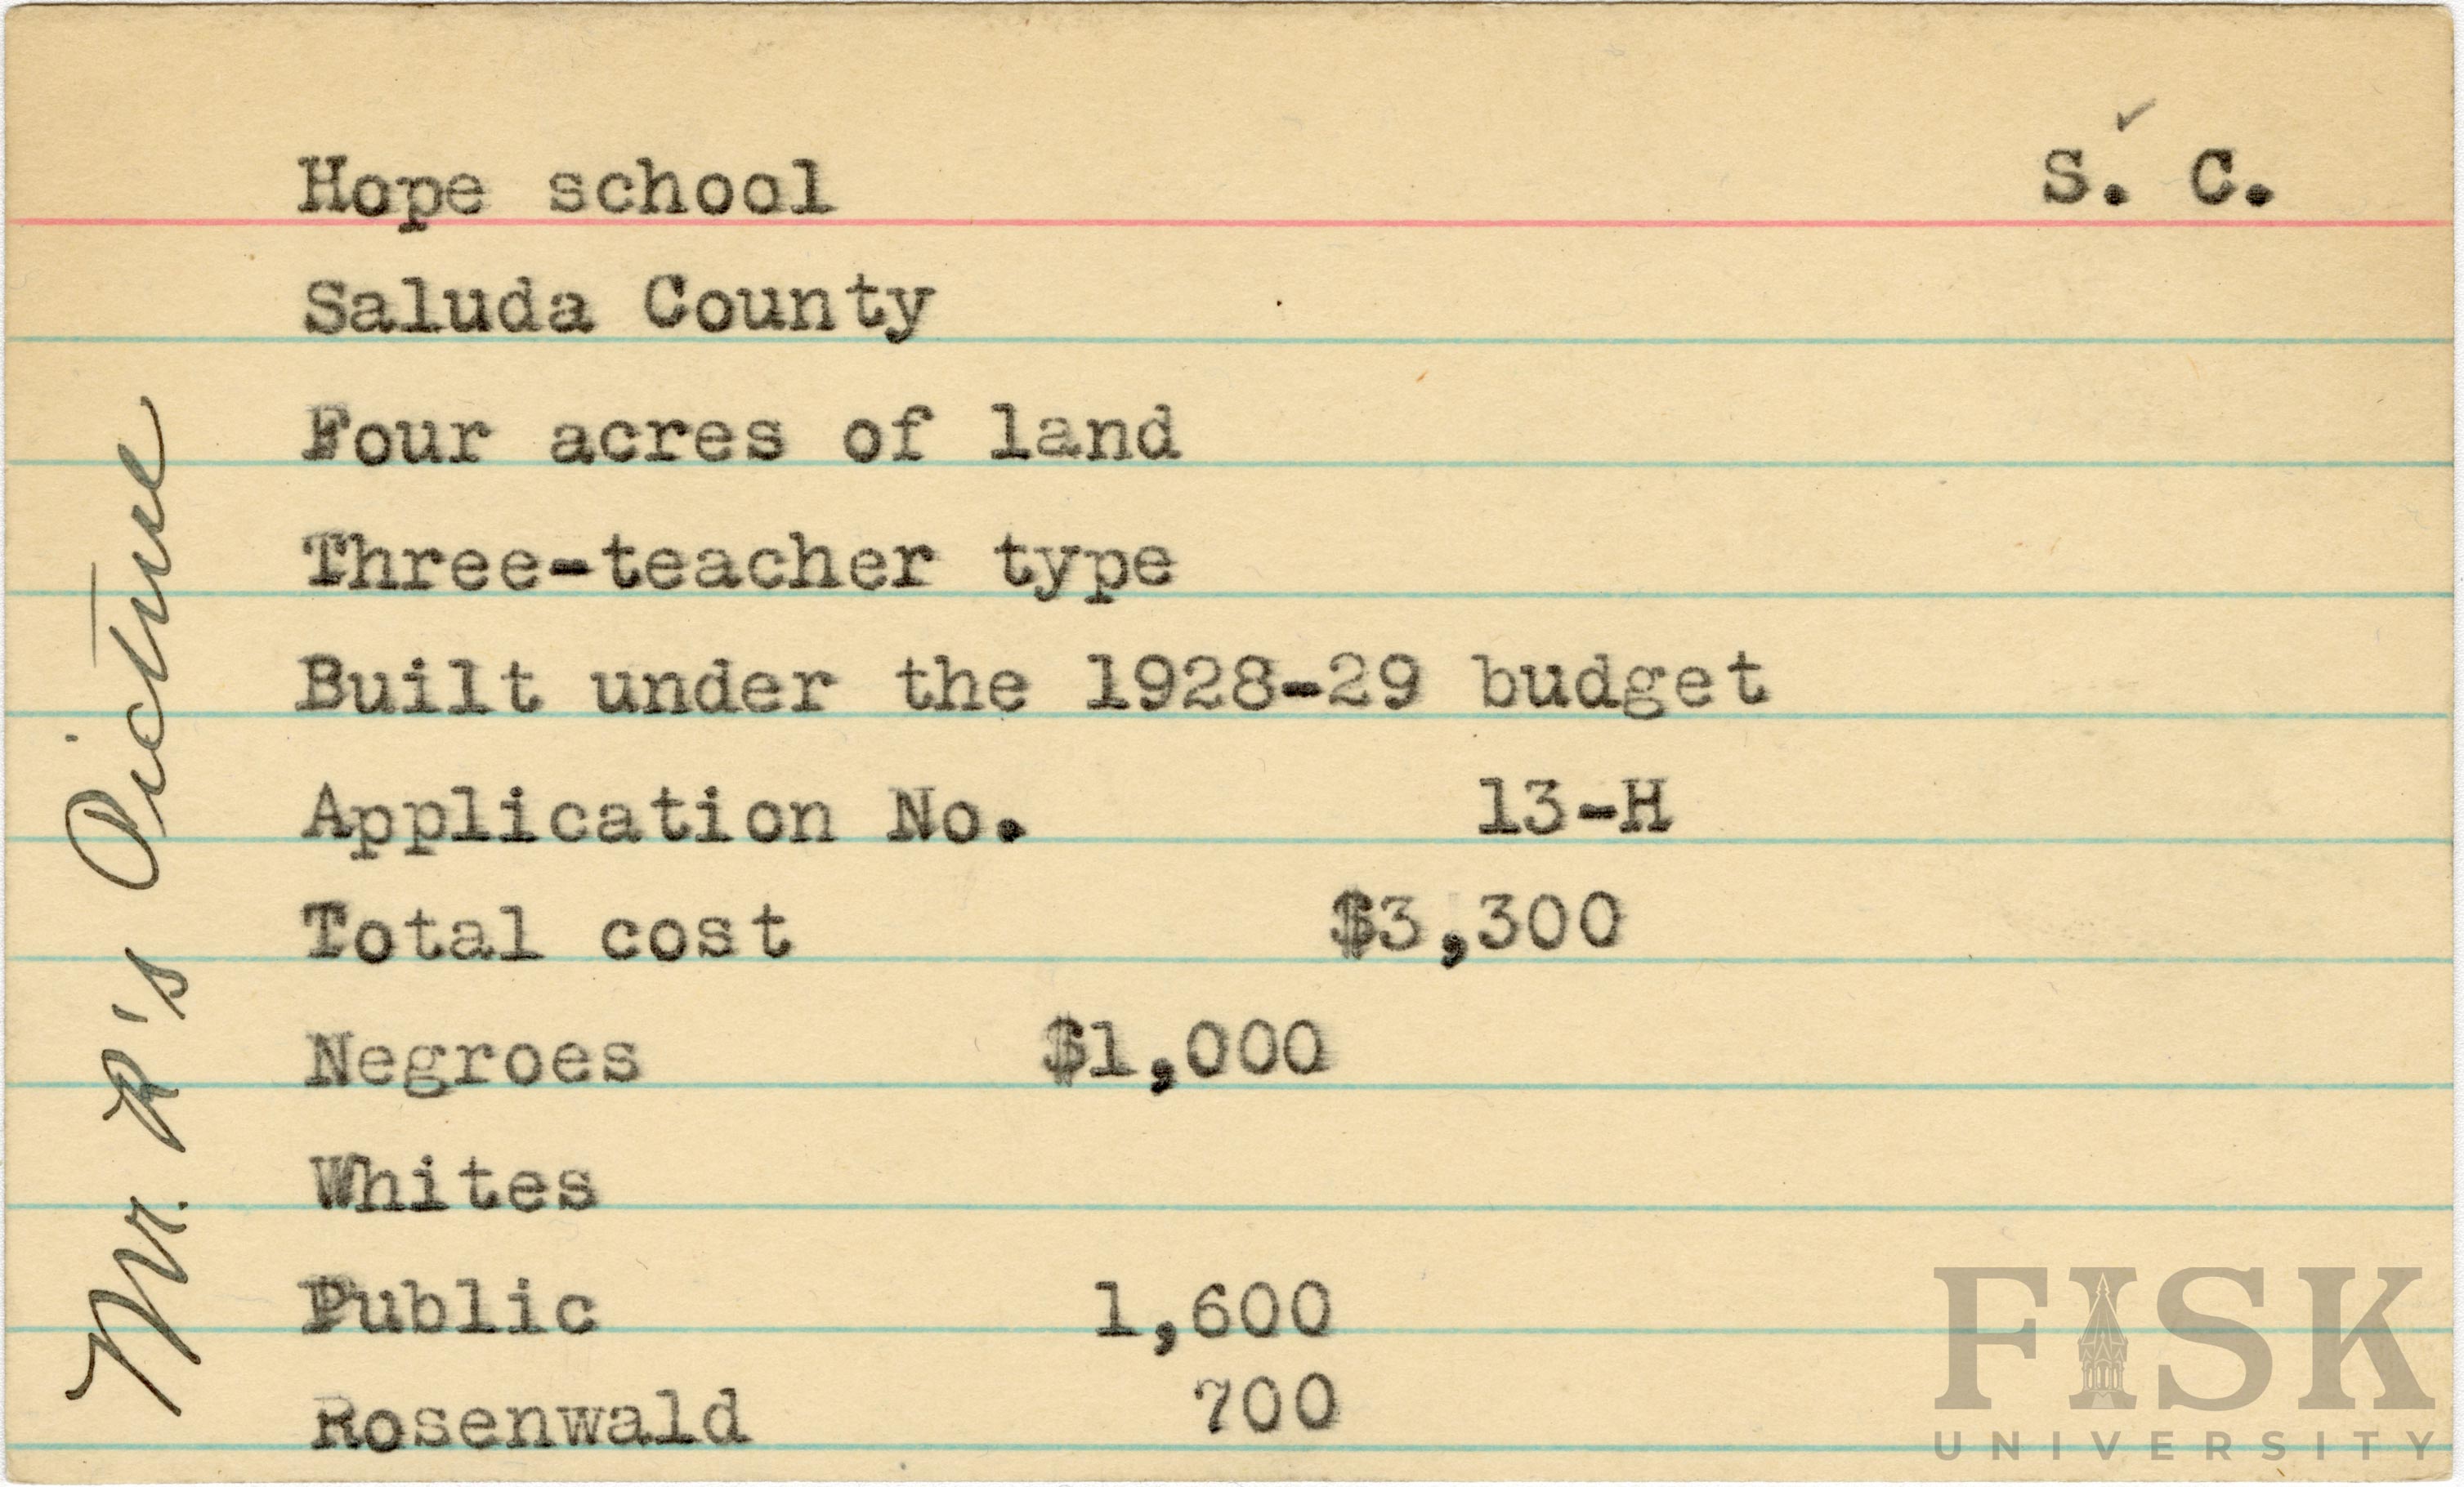 Hope school S. C.
Saluda County
Four acres of land
Three-teacher type
Built under the 1928-29 budget
Application No. 13-H
Total cost $3,300
Negroes $1,000
Whites
Public 1,600
Rosenwald 700
Mr. R's Picture
FISK
UNIVERSITY